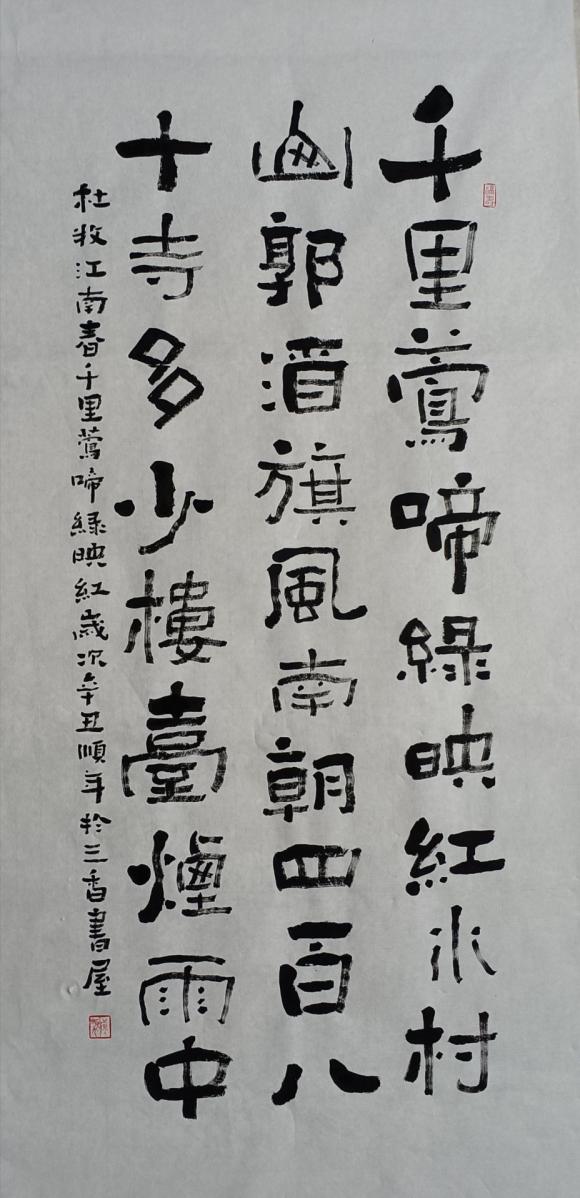 千里鶯啼綠映紅水村
山郭酒旗風南朝四百八
十寺多少樓臺煙雨中
杜牧江南春千里鶯啼綠映紅歲次辛丑順年於三香書屋